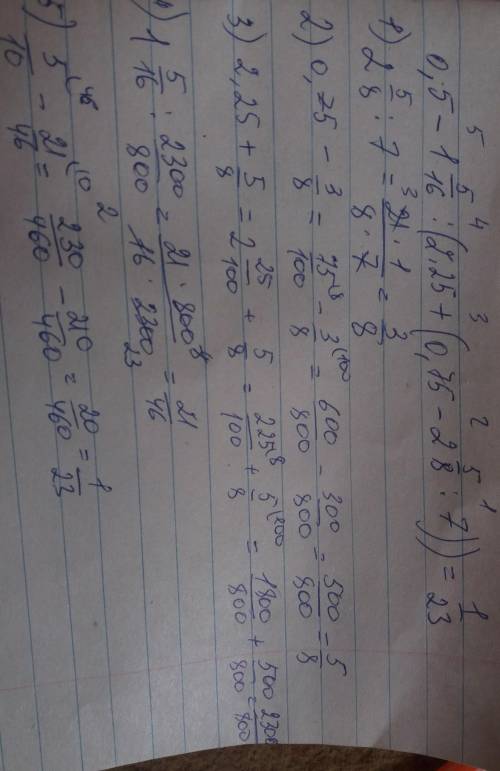 0,5 - 1 5/16 : (2,25 + (0,75 - 2 5/8 : 7)) = 1/23
1) 2 5/8 : 7 = 21·1/8·7 = 3/8
2) 0,75 - 3/8 = 75/100 - 3/8 = 600/800 - 300/800 = 500/800 = 5/8
3) 2,25 + 5/8 = 2 25/100 + 5/8 = 225/100 + 5/8 = 1800/800 + 500/800 = 2300/800
1 5/16 : 2300/800 = 21·800/16·2300 = 21/46
5) 5/10 - 21/46 = 230/460 - 210/460 = 20/460 = 1/23